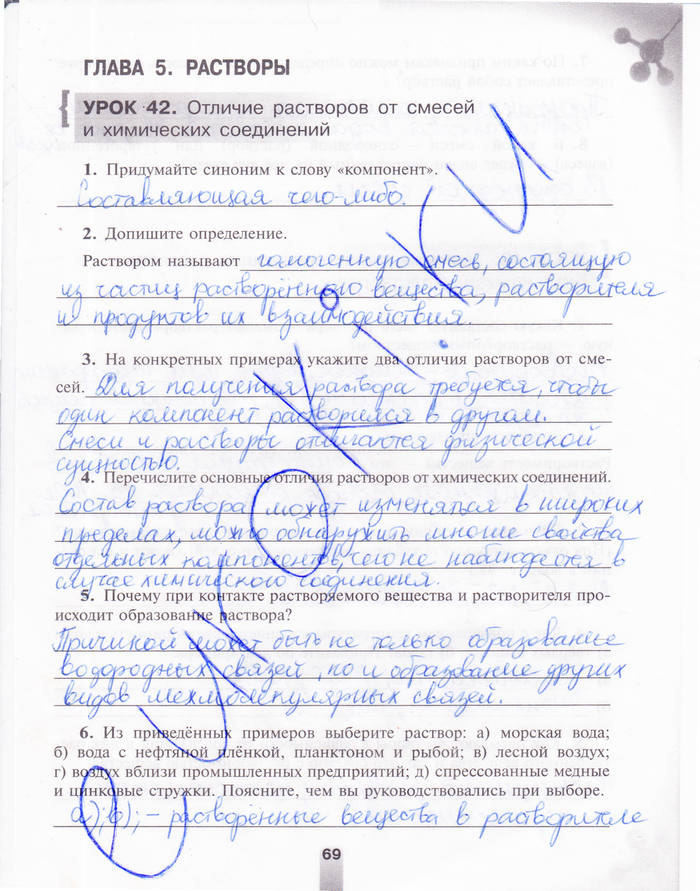 ГЛАВА 5. РАСТВОРЫ
УРОК 42. Отличие растворов от смесей
и химических соединений
1. Придумайте синоним к слову «компонент».
Составляющая чего-либо.
2. Допишите определение.
Раствором называют гомогенную смесь, состоящую
из частиц растворённого вещества, растворителя
и продуктов их взаимодействия.
3. На конкретных примерах укажите два отличия растворов от сме-
сей. Для получения раствора требуется, чтобы
один компонент растворился в другом.
Смеси и растворы отличаются физической
сущностью.
4. Перечислите основные отличия растворов от химических соединений.
Состав раствора может изменяться в широких
пределах, можно обнаружить многие свойства
отдельных компонентов, чего не наблюдается в
случае химического соединения.
5. Почему при контакте растворяемого вещества и растворителя про-
исходит образование раствора?
Причиной может быть не только образование
водородных связей, но и образование других
видов межмолекулярных связей.
6. Из приведённых примеров выберите раствор: а) морская вода;
б) вода с нефтяной плёнкой, планктоном и рыбой; в) лесной воздух;
г) воздух вблизи промышленных предприятий; д) спрессованные медные
и цинковые стружки. Поясните, чем вы руководствовались при выборе.
а); в); – растворённые вещества в растворителе
69